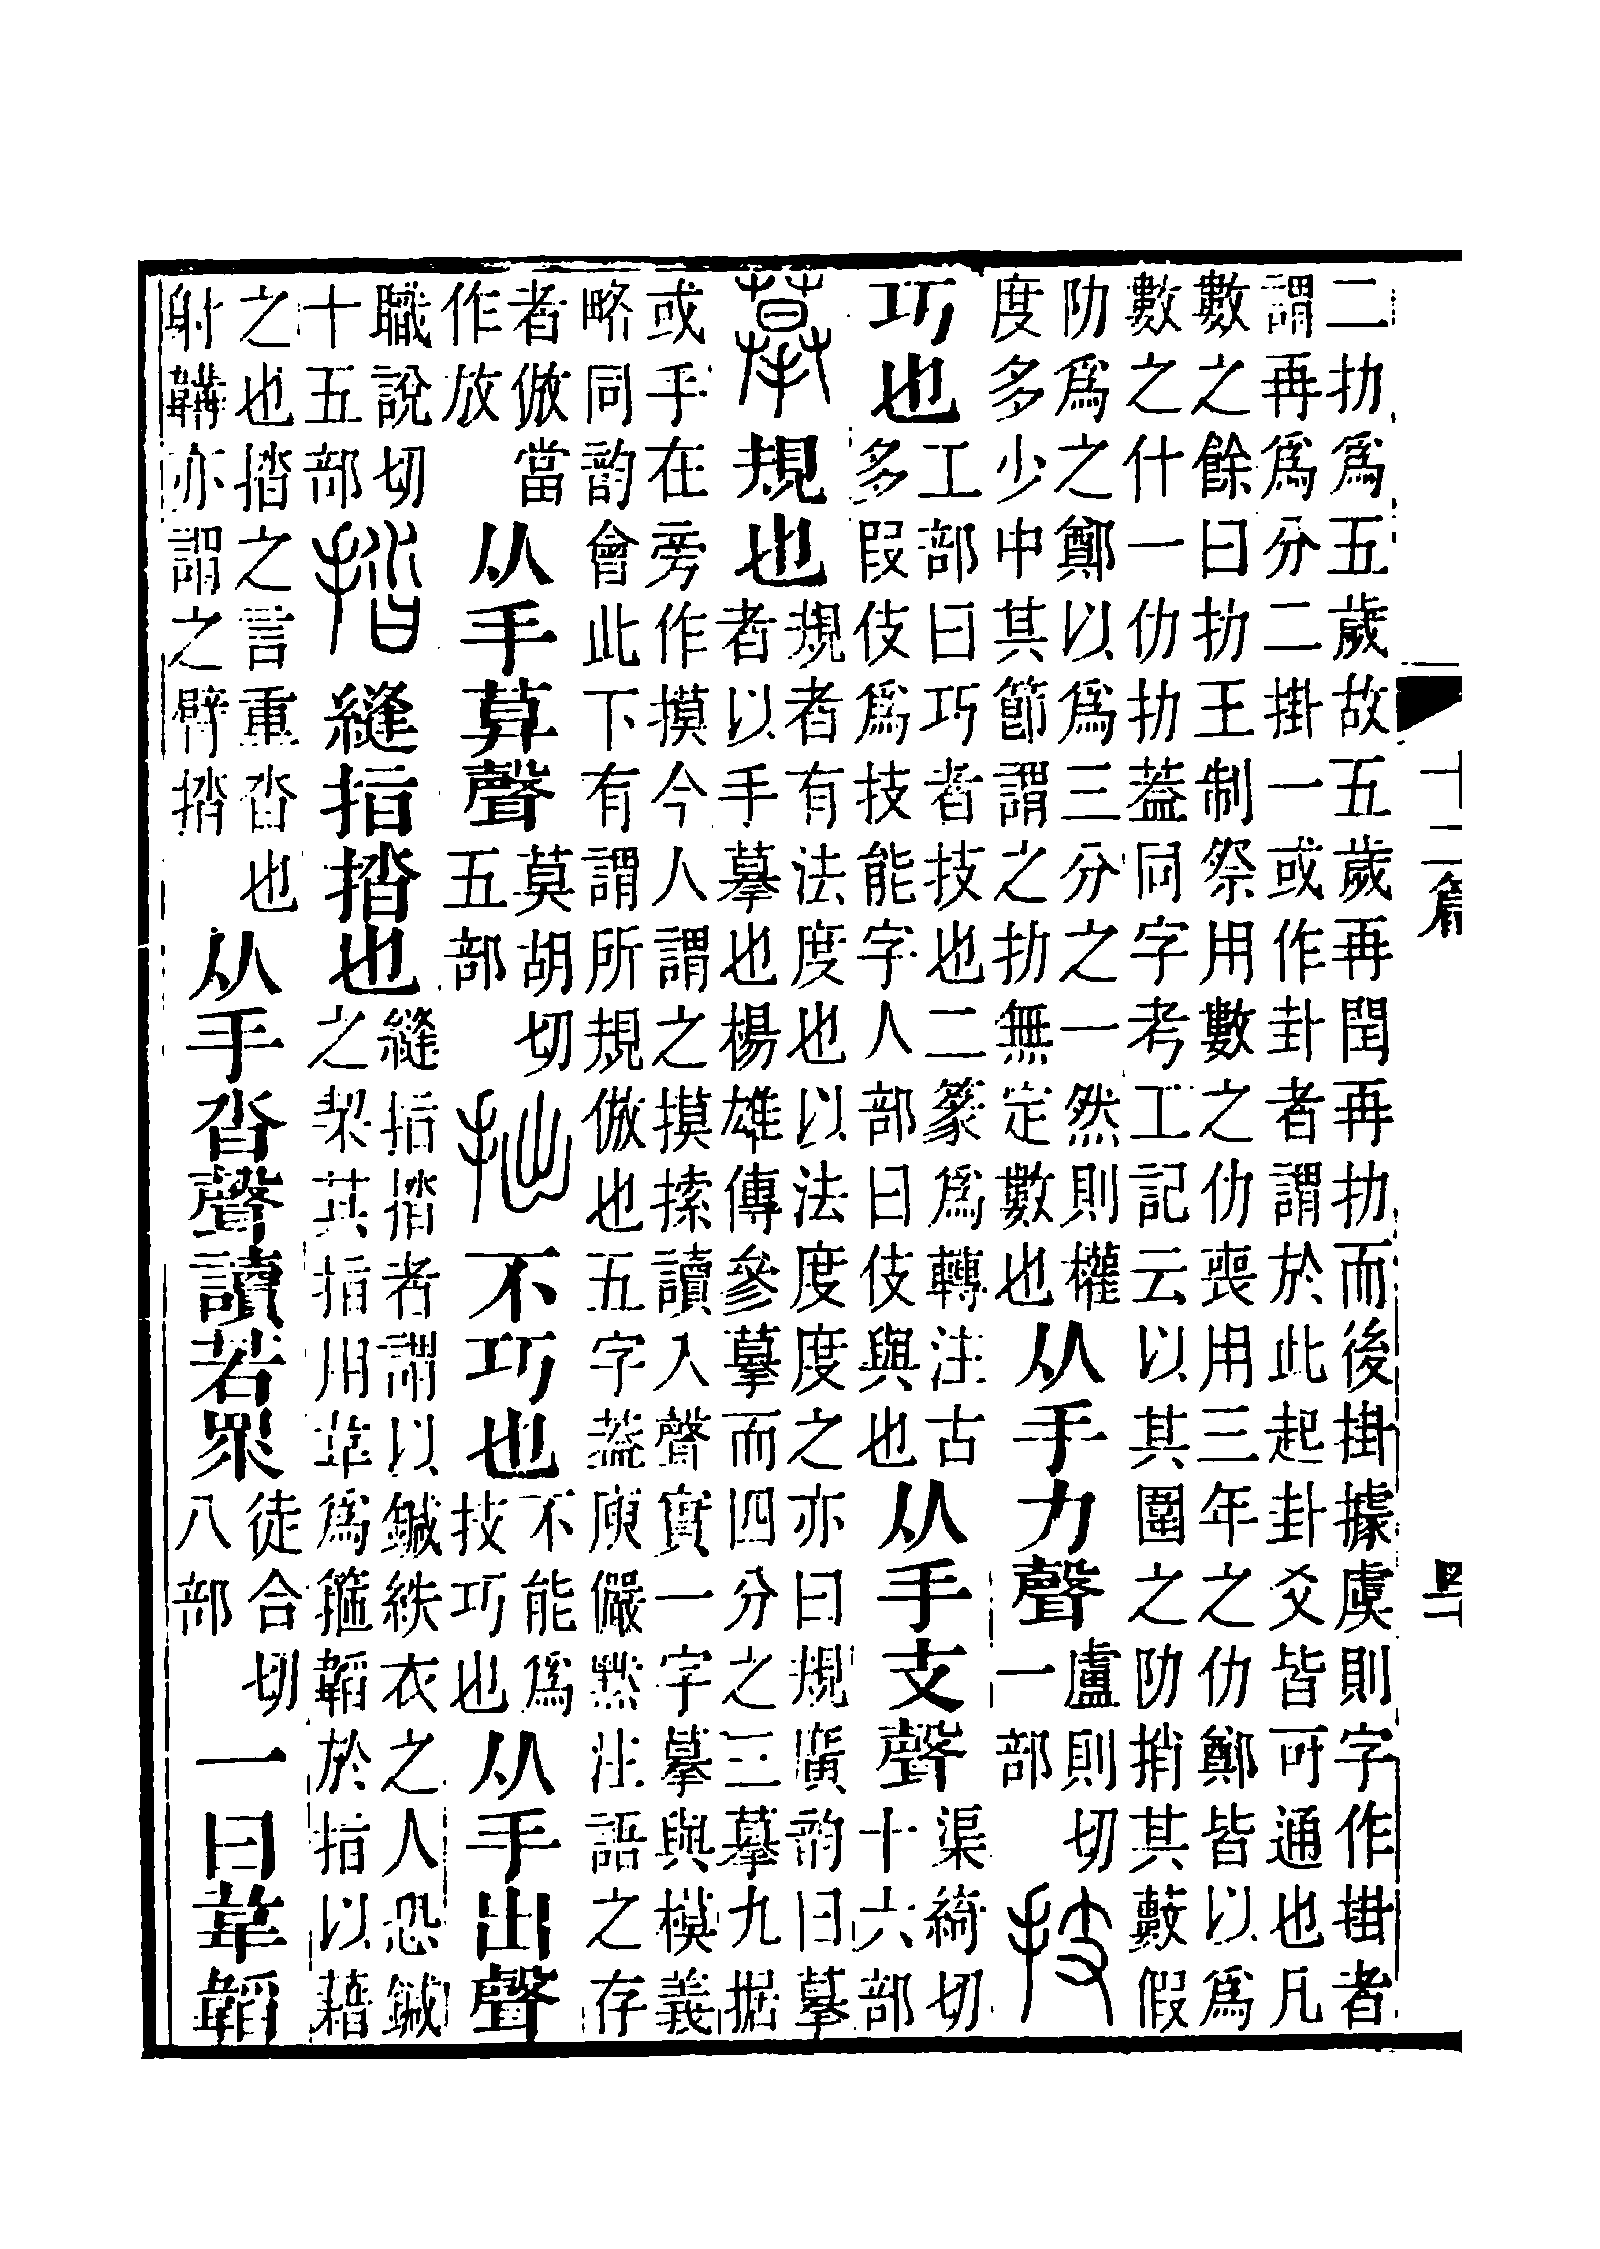 二扐爲五歲故五歲再閏再扐而後掛據虞則字作掛者
謂再爲分二掛一或作卦者謂於此起卦爻皆可通也凡
數之餘曰扐王制祭用數之仂喪用三年之仂鄭皆以爲
數之什一仂扐葢同字考工記云以其圍之阞捎其藪假
阞爲之鄭以爲三分之一然則權
度多少中其節謂之扐無定數也
从手力聲
盧則切
一部
技
巧也
工部曰巧者技也二篆爲轉注古
多叚伎爲技能字人部曰伎與也
从手支聲
渠綺切
十六部
摹
規也
規者有法度也以法度度之亦曰規廣韵曰摹
者以手摹也楊雄傳參摹而四分之三摹九据
或手在旁作摸今人謂之摸㨞讀入聲實一字摹與模義
略同韵會此下有謂所規倣也五字葢庾儼黙注語之存
者倣當
作放
从手莫聲
莫胡切
五部
拙
不巧也
不能爲
技巧也
从手出聲
職說切
十五部
㧺
縫指㧺也
縫指㧺者謂以鍼紩衣之人恐鍼
之契其指用韋爲箍韜於指以藉
之也㧺之言重沓也
射韝亦謂之臂㧺
从手沓聲讀若眾
徒合切
八部
一曰韋韜
十二篇